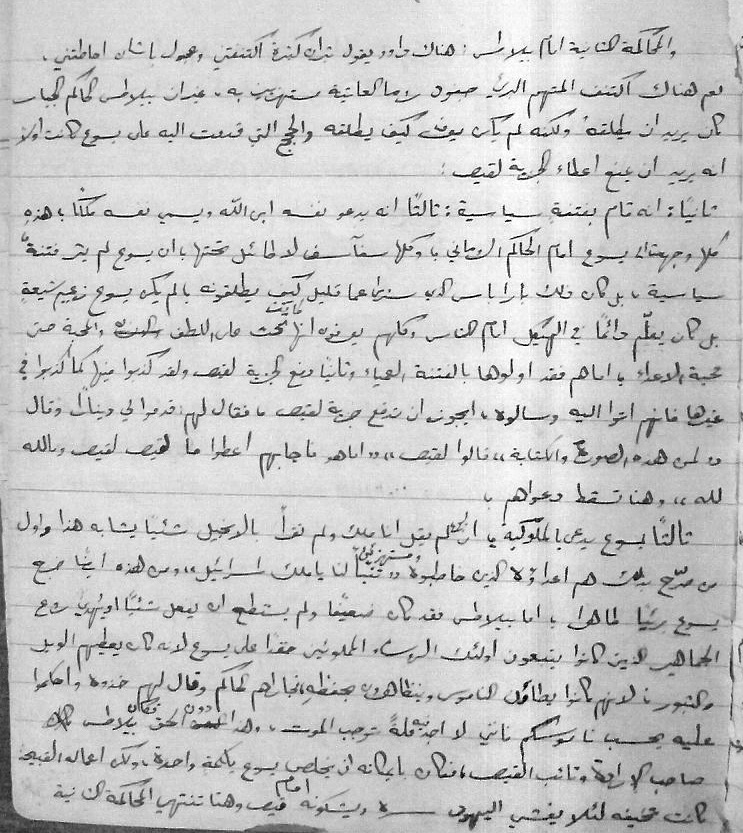 والمحاكمة الثانية امام بيلاطس: هناك داود يقول ثيران كثيرة اكتنفتني وعجول باشان احاطتني.
نعم هناك اكتنف المتهم البريء جنود روما العاتية مستهزئين به. غير ان بيلاطس الحاكم الجبار
كان يريد ان يطلقه ولكنه لم يكن يعرف كيف يطلقه والحجج التي قدمت اليه على يسوع كانت اولا
انه يريد ان يمنع اعطاء الجزية لقيصر:
ثانيًا: انه قام بفتنة سياسية: ثالثًا انه يدعو نفسه ابن الله ويسمي نفسه ملكًا، هذه
كلها وجهت الى يسوع امام الحاكم الروماني، وكلها لا طائل تحتها، ان يسوع لم يثر فتنة
سياسية، بل كان ذلك باراباس الذي سنرى عما قليل كيف يطلقونه، لم يكن يسوع زعيم شيعة
بل كان يعلّم دائمًا في الهيكل امام الناس وكلهم يعرفون انها كانت تحث على اللطف والمحبة حتى
محبة الاعداء، اما هم فقد اولوها بالفتنة العمياء وثانيا دفع الجزية لقيصر وقد كذبوا فيها كما كذبوا في
غيرها فانهم اتوا اليه وسألوه، ايجوز ان ندفع جزية لقيصر، فقال لهم: قدموا لي دينارا وقال
لمن هذه الصورة والكتابة،، قالوا لقيصر،، اما هو فاجابهم اعطوا ما لقيصر لقيصر وما لله
لله،، وهنا تسقط دعواهم،
ثالثًا يسوع يدعى بالملوكية، لم يقل انا ملك ولم نقرأ بالانجيل شيئًا يشابه هذا واول
من صرّح بذلك هم اعداؤه الذين خاطبوه ومستهزئين تنبأ لنا يا ملك اسرائيل،، ومن هذه ايضًا خرج
يسوع بريئا طاهرا، اما بيلاطس فقد كان ضعيفًا ولم يستطع ان يفعل شيئًا
الجماهير الذين كانوا يتبعون اولئك الرؤساء المملوئين حقدا على يسوع لانه كان يعطيهم الويل
والثبور، لانهم كانوا يطأون الناموس ويتظاهرون بحفظه، فجاراهم الحاكم وقال لهم خذوه واحكموا
عليه بحسب ناموسكم فاني لا اجد فيه علةً توجب الموت، وهذا الحق فكان بيلاطس
صاحب الارادة ونائب القيصر، فكان بامكانه ان يخلص يسوع بكلمة واحدة، ولكن اعماله القبيحة
كانت تخيفه لئلا يفشي اليهود سره ويشكونه امام قيصر وهنا تنتهي المحاكمة الثانية